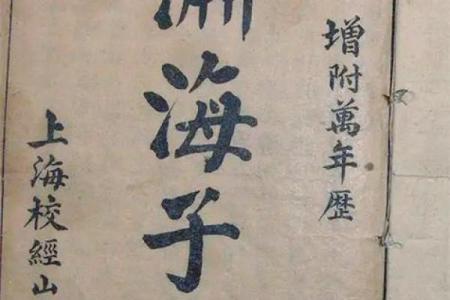 增附萬年歴
淵海子
上海校經山